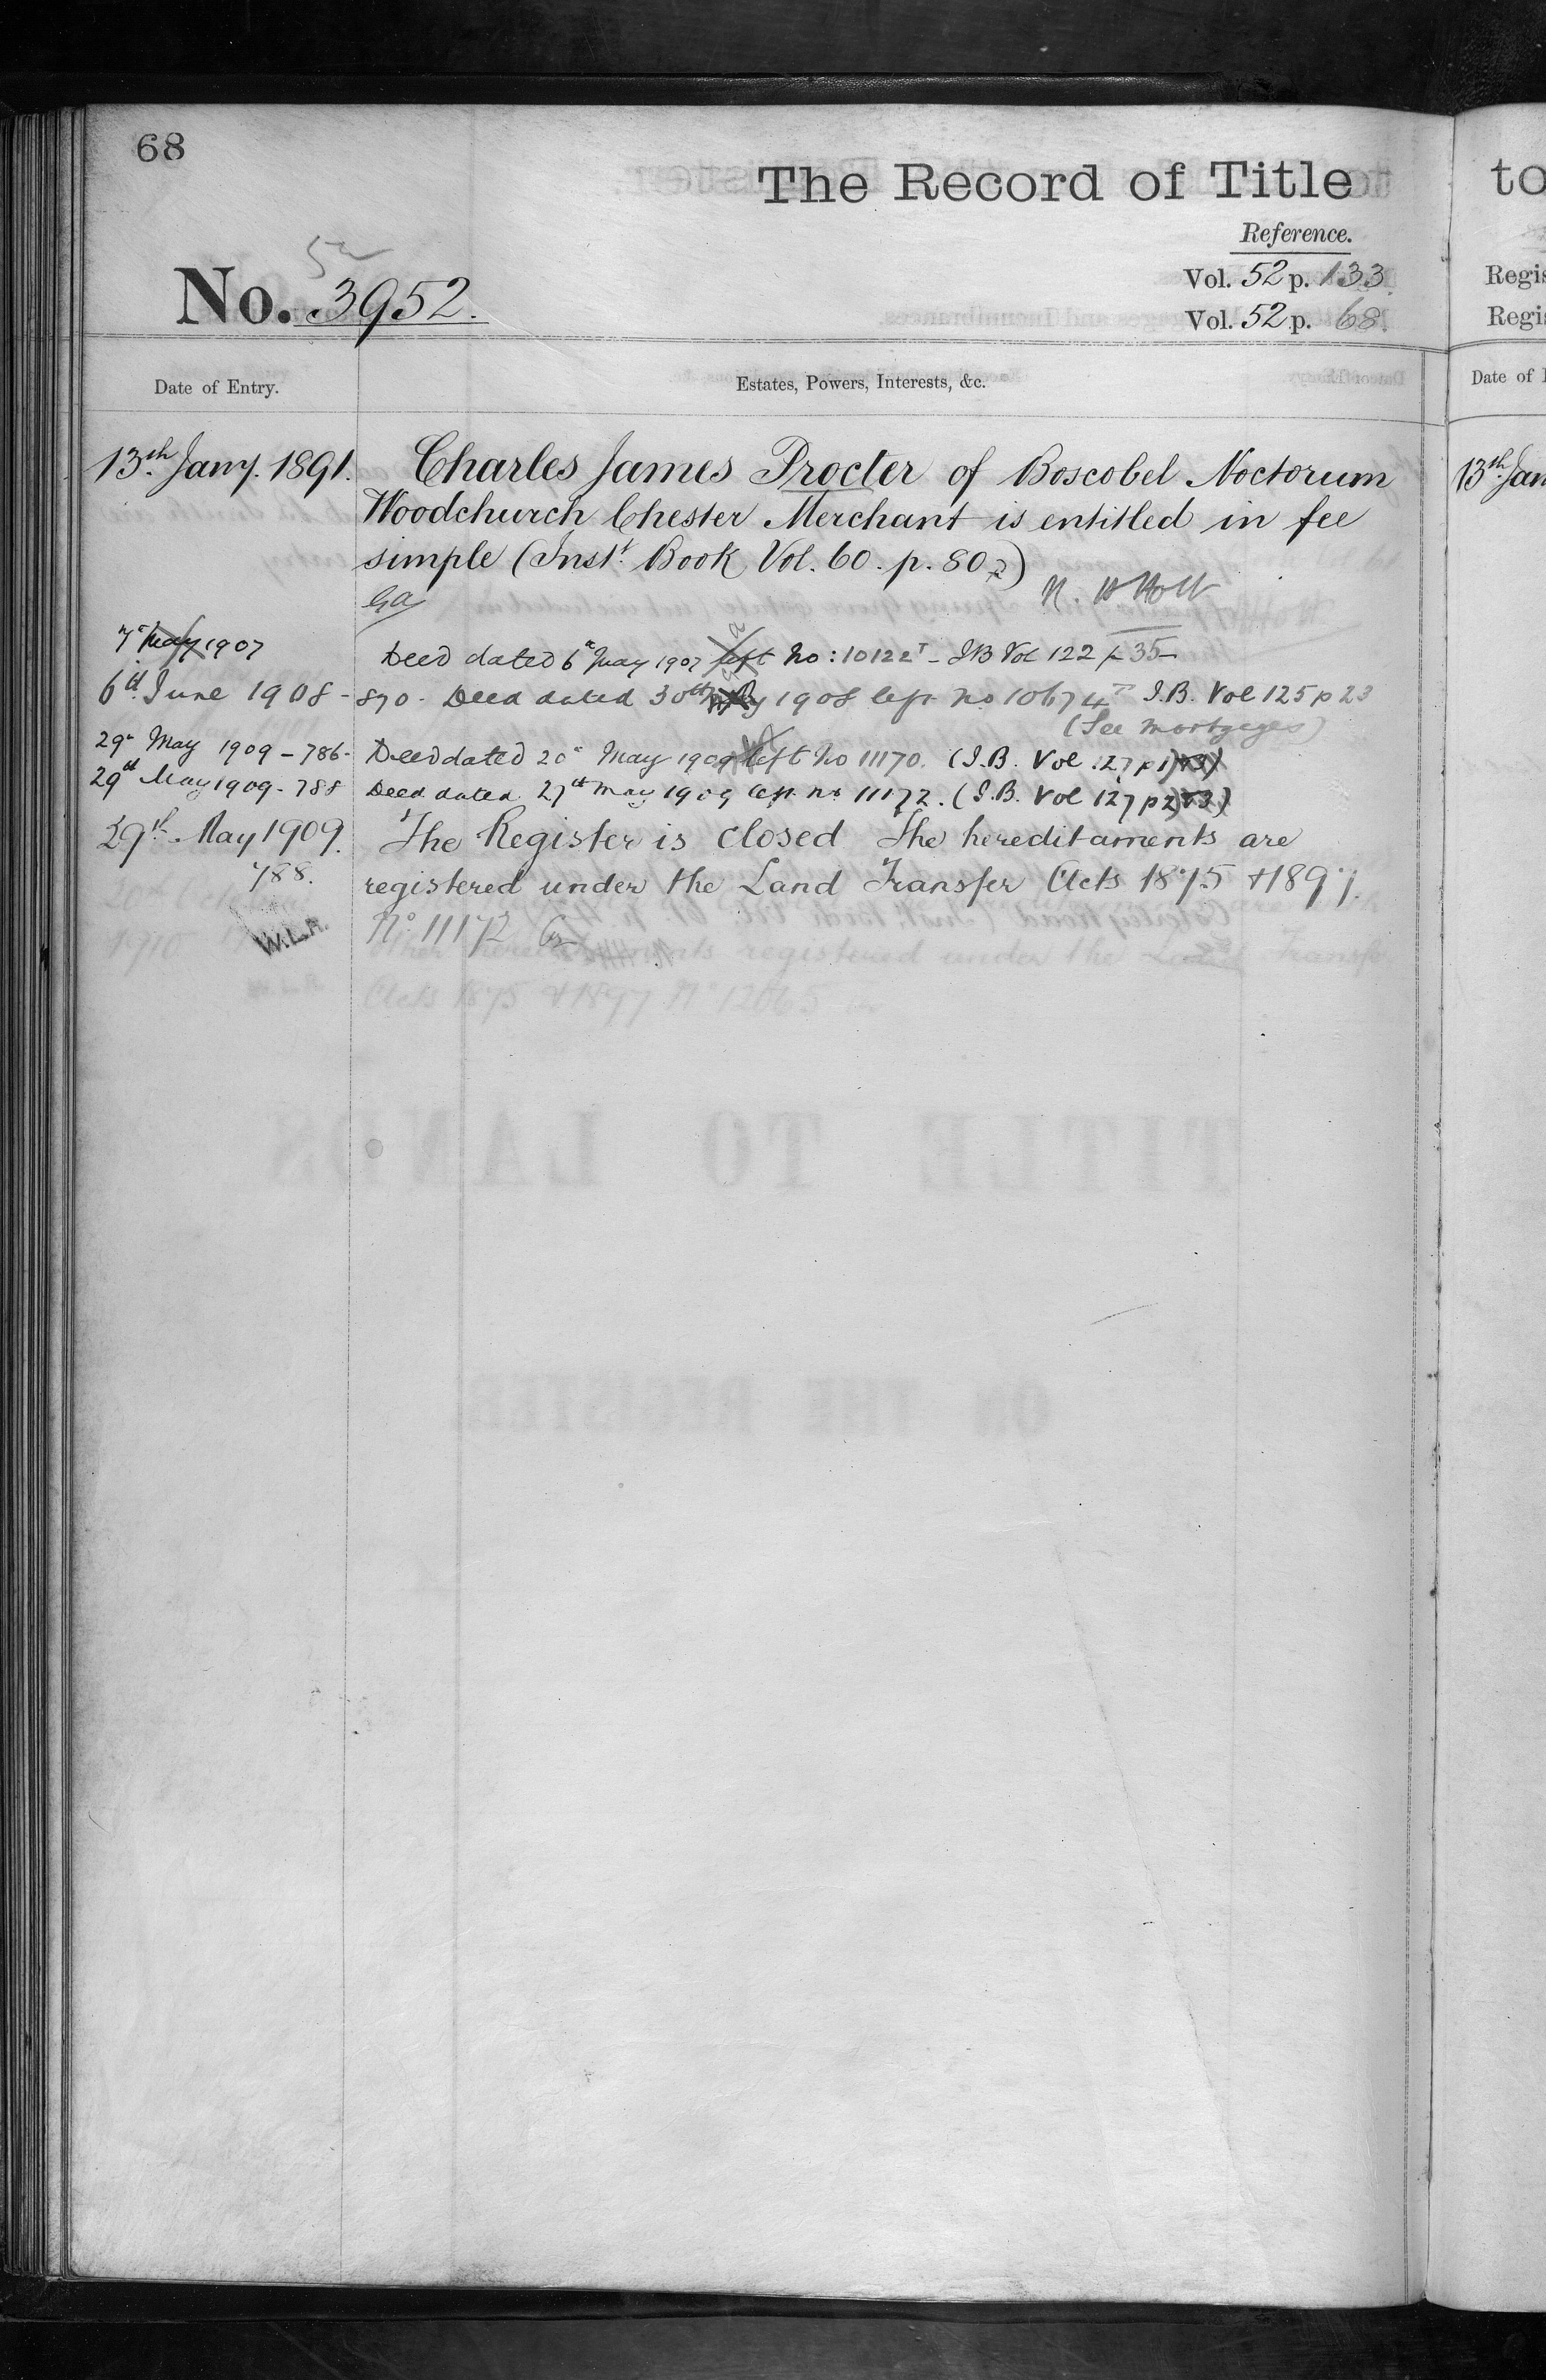 68
The Record of Title
Reference.
52
No. 3952.
Vol. 52 p. 133.
Vol. 52 p. 68.
Date of Entry.
Estates, Powers, Interests, &c.
13th Jany. 1891.
Charles James Procter of Boscobel Noctorum
Woodchurch Chester Merchant is entitled in fee
simple (Inst. Book Vol. 60. p. 80)
7 May 1907
Deed dated 6 May 1907 left No: 10122T - IB Vol 122 p 35
6th June 1908 - 870 - Deed dated 30th 1908 left no 10674T I.B. Vol 125 p 23
(See Mortgages)
29 May 1909 - 786 - Deed dated 20 May 1909 left No 11170. (I.B. Vol 127 p 1)
29th May 1909 - 788 Deed dated 27th May 1909 left no 11172. (I.B. Vol 127 p 2)
29th May 1909. The Register is closed The hereditaments are
788. registered under the Land Transfer Acts 1875 + 1897.
W.L.R. No. 11172
other registered under the Land Transfer
1910
Acts 1875 + 1897 No 12065
to
Regis
Regis
Date of
13th Jan